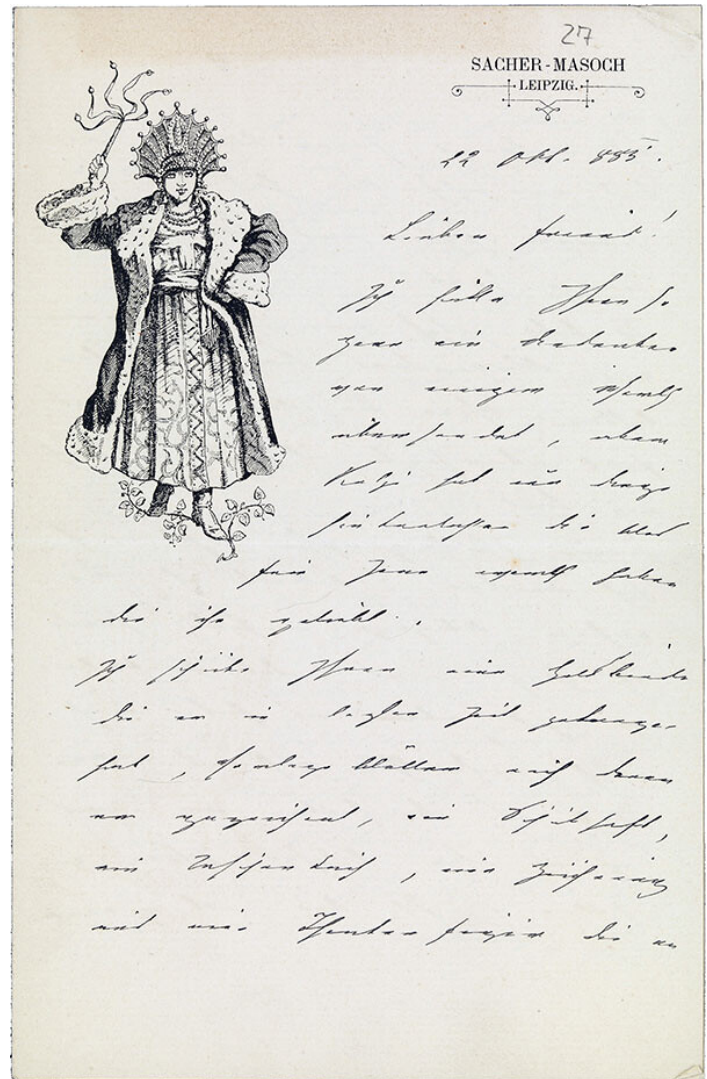 27
SACHER-MASOCH
LEIPZIG.
22 Okt. 885.
Lieber Freund!
Ich hätte Ihnen so
gern ein Andenken
von einigem Werth
übersendet, aber
hat nur Dinge
hinterlassen die blos
für Jene werth haben
die ihn geliebt.
Ich schicke Ihnen eine Halsbinde
die er in letzter Zeit getragen
hat, Vorlage Blätter nach denen
er gezeichnet, ein Schulheft,
ein Taschentuch, eine Zeichnung
und eine Theaterfigur die er